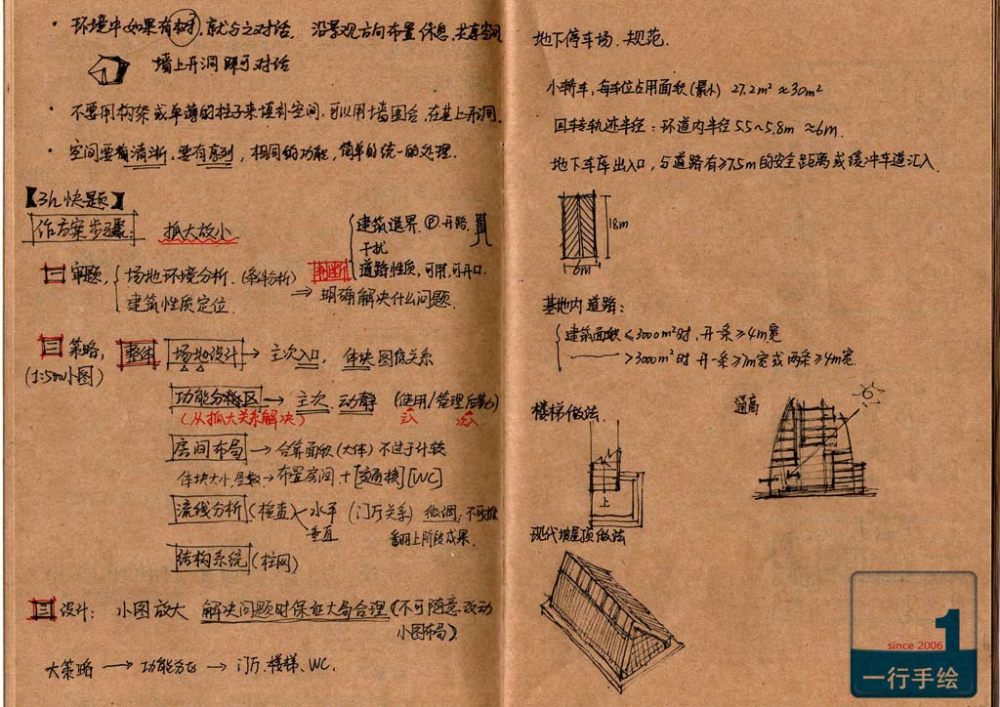 · 环境中如果有树,就与之对话. 沿景观方向布置休息,共享空间
墙上开洞即可对话
· 不要用构架或单薄的柱子来填补空间,可以用墙围合,在其上开洞.
· 空间要有清晰,要有序列,相同的功能,简单的统一的处理.
【3h快题】
作方案步骤: 抓大放小.
一 审题, 场地环境分析.(条件分析)
建筑性质定位.
判断 建筑退界. P.开路.
干扰
道路性质,可用,可开口.
⇒ 明确解决什么问题.
二 策略, (1:500小图)
整体 场地设计 → 主次入口, 体块图底关系
功能分区 → 主次,动静 (使用/管理后勤)
(从抓大关系解决) 主入 次入
房间布局 → 合算面积(大体)不过于计较
体块大小.层数→布置房间+[交通核][WC]
流线分析(检查) 水平 (门厅关系) 微调,不可推翻上阶段成果.
垂直
结构系统(柱网)
三 设计: 小图放大 解决问题时保证大局合理(不可随意改动小图布局)
大策略 → 功能分区 → 门厅.楼梯.WC.
地下停车场.规范.
小轿车,每车位占用面积(最小) 27.2m² ≈30m²
回车轨迹半径:环道内半径5.5~5.8m ≈6m.
地下车库出入口,与道路有≥7.5m的安全距离或缓冲车道汇入.
18m
6m
基地内道路:
建筑面积≤3000m²时,开一条≥4m宽
—— >3000m²时 开一条≥7m宽或两条≥4m宽
楼梯做法.
上
通高
现代坡屋顶做法
1
since 2006
一行手绘